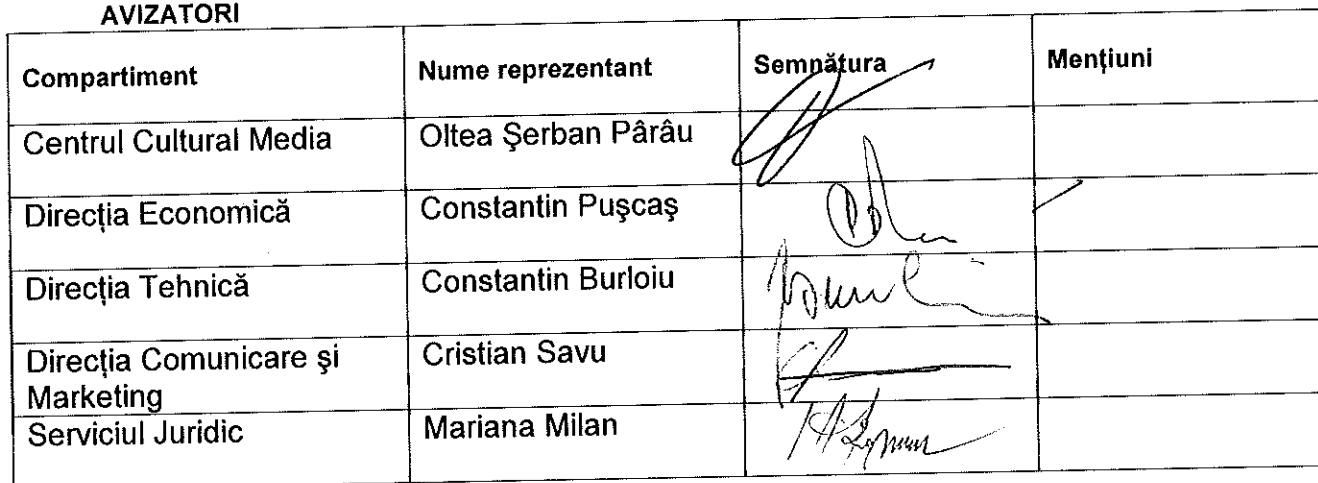 AVIZATORI
Compartiment Nume reprezentant Semnătura Mențiuni
Centrul Cultural Media Oltea Şerban Pârâu
Direcţia Economică Constantin Puşcaş
Direcţia Tehnică Constantin Burloiu
Direcţia Comunicare şi Cristian Savu
Marketing
Serviciul Juridic Mariana Milan